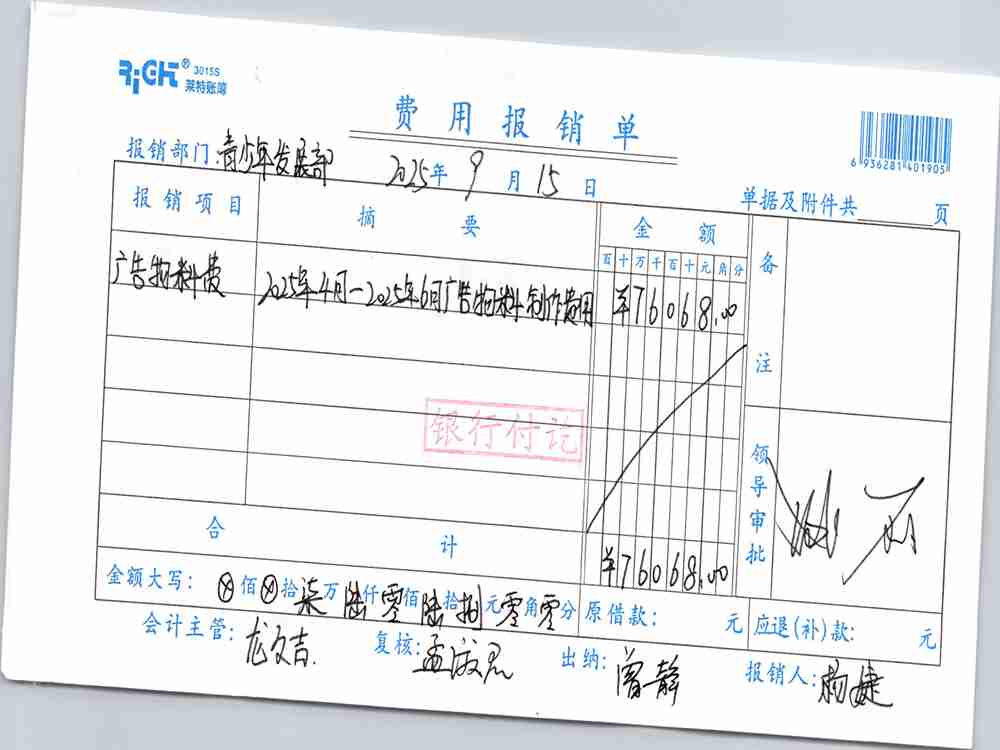 RiGHT® 3015S
莱特账簿
费用报销单
6 936281 401905
报销部门:青少年发展部 2025年9月15日
单据及附件共 页
报销项目 摘要 金额 备注
百十万千百十元角分
广告物料费 2025年4月-2025年6月广告物料制作费用 ¥76068.00
银行付讫
领导审批
合计 ¥76068.00
金额大写: ⊗佰⊗拾柒万陆仟零佰陆拾捌元零角零分 原借款: 元 应退(补)款: 元
会计主管:龙文吉 复核:孟 出纳:曾静 报销人:杨婕